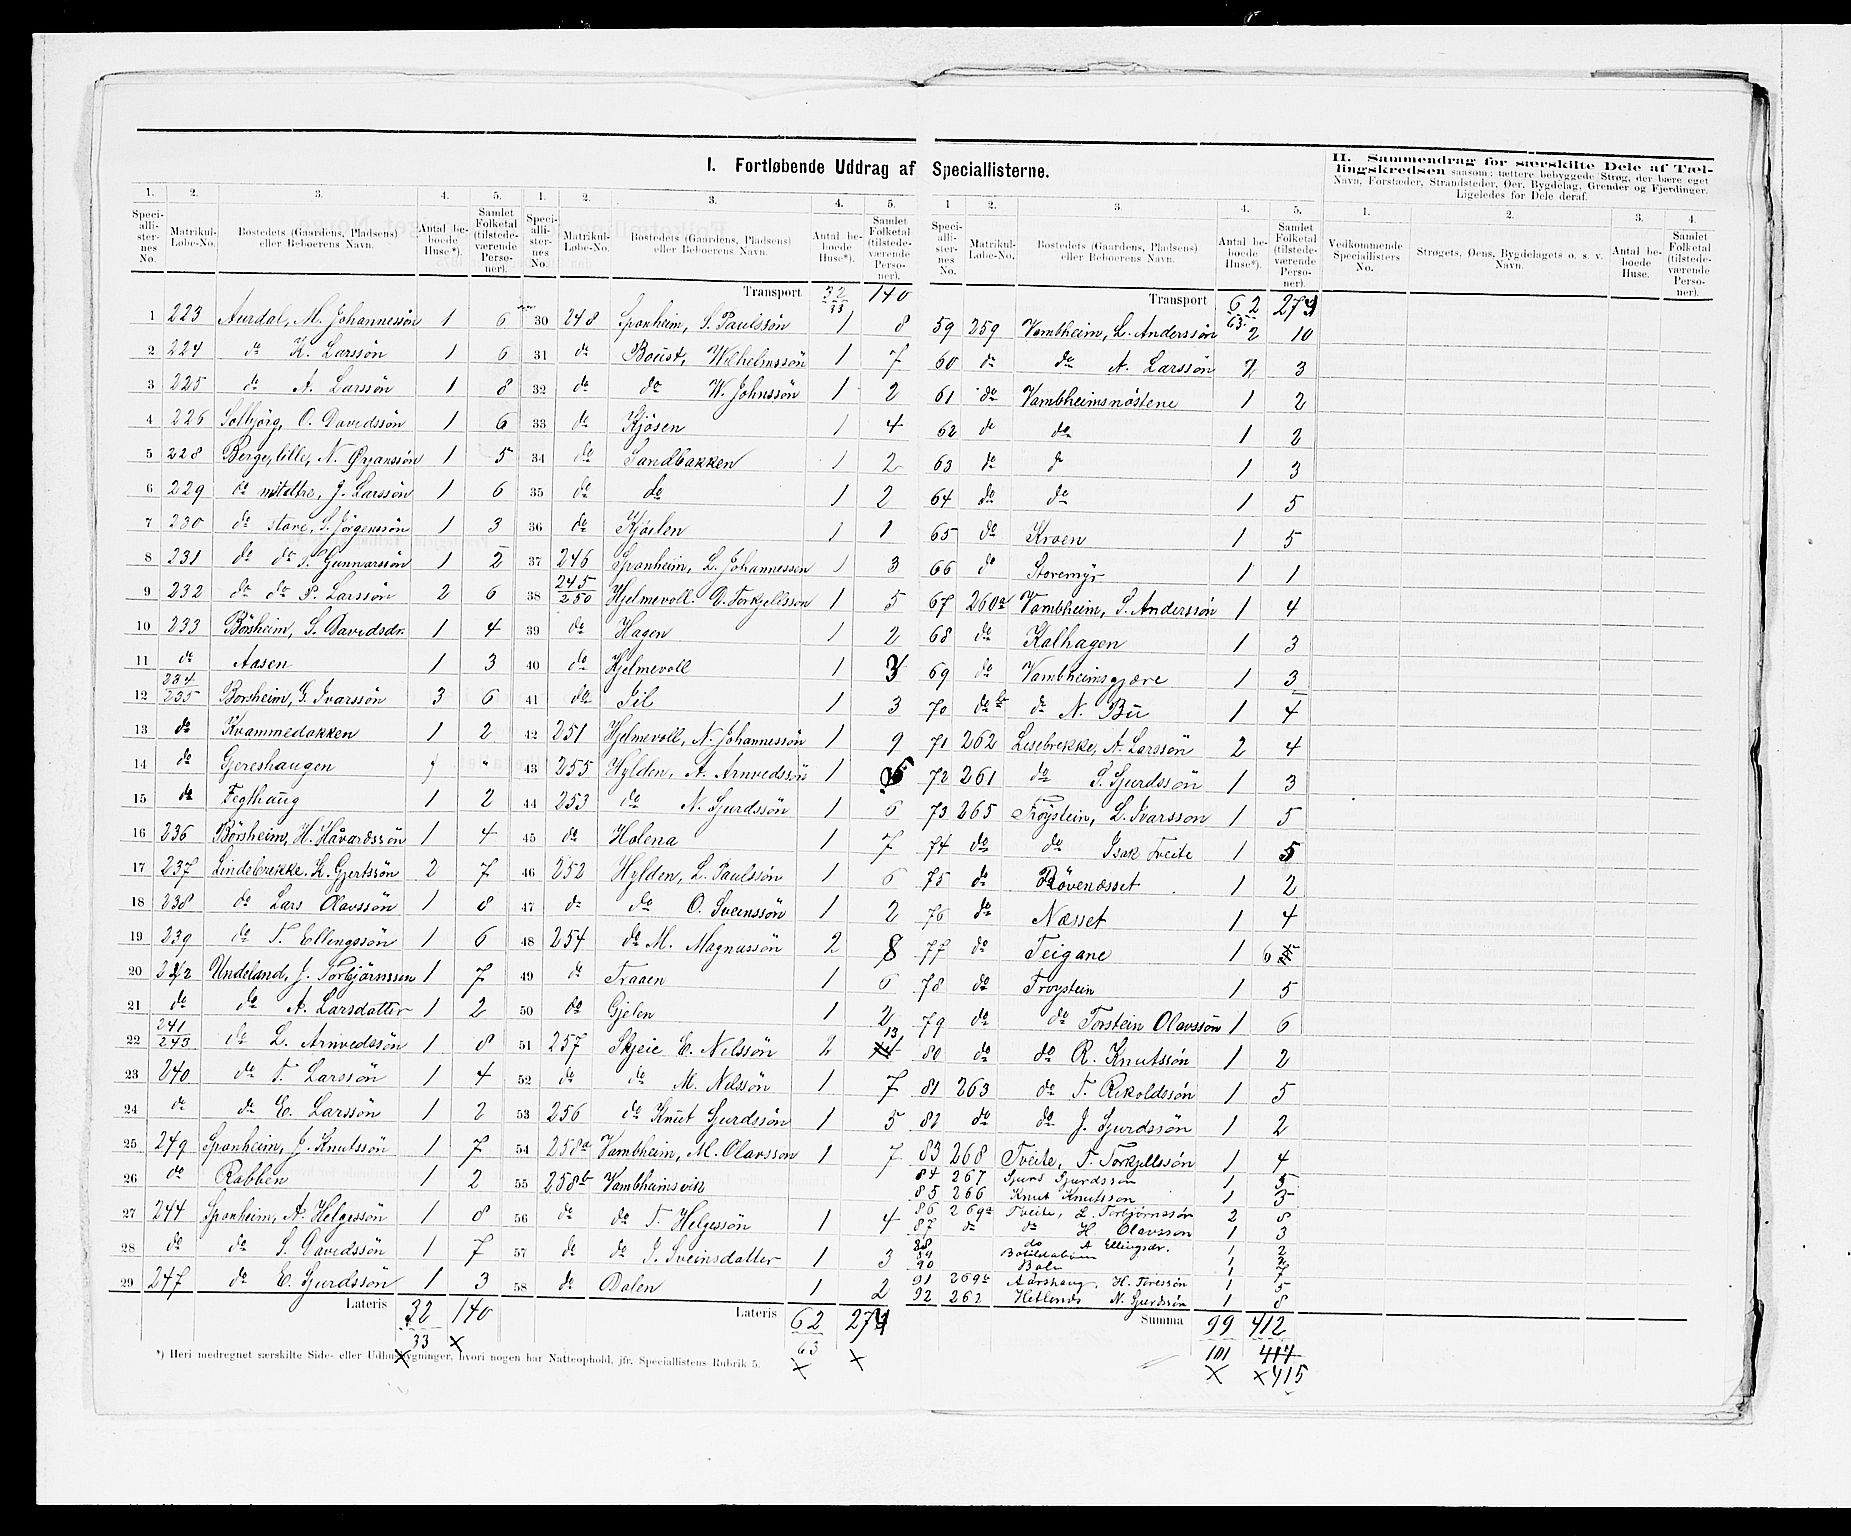 I. Fortløbende Uddrag af Speciallisterne.
1. 2. 3. 4. 5.
Speciallisternes No. Matrikul-Løbe-No. Bostedets (Gaardens, Pladsens) eller Beboerens Navn. Antal beboede Huse*). Samlet Folketal (tilstedeværende Personer).
1 223 Aurdal, M. Johannessön 1 6
2 224 do K. Larssön 1 6
3 225 do A. Larssön 1 8
4 226 Solbjörg, O. Davidssön 1 6
5 228 Berge, lille, N. Örjanssön 1 5
6 229 do mitaltre, J. Larssön 1 6
7 230 do store, S. Jörgenssön 1 3
8 231 do do T. Gunnarssön 1 2
9 232 do do P. Larssön 2 6
10 233 Börsheim, S. Davidsdr. 1 4
11 do Aasen 1 3
12 234/235 Borsheim, G. Ivarssön 3 6
13 do Kvammedokken 1 2
14 do Gjereshaugen " "
15 do Fegthaug 1 2
16 236 Börsheim, H. Håvardssön 1 4
17 237 Lindebrekke, K. Gjertssön 2 7
18 238 do Lars Olavssön 1 8
19 239 do T. Ellingssön 1 6
20 242 Undeland, J. Torbjörnssen 1 7
21 do do A. Larsdatter 1 2
22 241/243 do L. Arnvedssön 1 8
23 240 do T. Larssön 1 4
24 do do E. Larssön 1 2
25 249 Sponheim, J. Knutssön 1 7
26 do Rabben 1 2
27 244 Sponheim, A. Helgessön 1 8
28 do do S. Davidssön 1 7
29 247 do E. Sjurdssön 1 3
Lateris 32 140
33
× ×
1. 2. 3. 4. 5.
Speciallisternes No. Matrikul-Løbe-No. Bostedets (Gaardens, Pladsens) eller Beboerens Navn. Antal beboede Huse*). Samlet Folketal (tilstedeværende Personer).
Transport 32/33 140
30 248 Sponheim, S. Paulssön 1 8
31 do Boust, Wilhelmssön 1 7
32 do do W. Johnssön 1 2
33 do Kjösen 1 4
34 do Sandbakken 1 2
35 do do 1 2
36 do Kjöilen 1 1
37 246 Sponheim, L. Johannessön 1 3
38 245/250 Hjelmevoll. D. Torkjellsson 1 5
39 do Hagen 1 2
40 do Hjelmevoll 1 3
41 do Gil 1 3
42 251 Hjelmevoll, N. Johannessön 1 9
43 255 Hylden, A. Arnvedssön 1 5
44 253 do N. Sjurdssön 1 6
45 do Holena 1 7
46 252 Hylden, L. Paulssön 1 6
47 do do O. Sveinssön 1 2
48 254 do M. Magnussön 2 8
49 do Traaen 1 6
50 do Gjelen 1 2
51 257 Skjeie E. Nilssön 2 13
52 do do M. Nilssön 1 7
53 256 do Knut Sjurdssön 1 5
54 258a Vambheim, M. Olavsson 1 7
55 258b Vambheimsvik
56 do do T. Helgessön 1 4
57 do do G. Sveinsdatter 1 3
58 do Dalen 1 2
Lateris 62 274
63
× ×
1 2. 3. 4. 5.
Speciallisternes No. Matrikul-Løbe-No. Bostedets (Gaardens, Pladsens) eller Beboerens Navn. Antal beboede Huse*). Samlet Folketal (tilstedeværende Personer).
Transport 62 274
63
59 259 Vambheim, L. Anderssön 2 10
60 do do A. Larssön 2 3
61 do Vambheimsnöstene 1 2
62 do do 1 2
63 do do 1 3
64 do do 1 5
65 do Kroen 1 5
66 do Storemyr 1 1
67 260a Vambheim, S. Anderssön 1 4
68 do Kalhagen 1 3
69 do Vambheimsgjære 1 3
70 do b do N. Bu 1 4
71 262 Lisebrekke, A. Larssön 2 4
72 261 do S. Sjurdssön 1 3
73 265 Tröystein, L. Ivarsson 1 5
74 do do Isak Tveite 1 5
75 do Rövenæsset 1 2
76 do Næsset 1 4
77 do Teigane 1 6
78 do Tröystein 1 5
79 do do Torstein Olavssön 1 6
80 do do R. Knutssön 1 2
81 263 do T. Rikoldssön 1 5
82 do do J. Sjurdssön 1 2
83 268 Tveite, T. Torkjellssön 1 4
84 267 Sjurd Sjurdsson 1 5
85 266 Knut Knutsson 1 3
86 269a Tveite, L. Torbjörnssön 2 8
87 do do H. Olavsson 1 3
88 do A Ellingsdr. 1 2
89 1 2
90 1 7
91 269b Aarshaug, H. Toressön 1 5
92 262 N. Sjurdssön 1 8
Summa 99 412
101 414
× × 415
II. Sammendrag for særskilte Dele af Tællingskredsen saasom: tættere bebyggede Strøg, der bære eget Navn, Forstæder, Strandsteder, Øer, Bygdelag, Grender og Fjerdinger. Ligeledes for Dele deraf.
1. 2. 3. 4.
Vedkommende Speciallisters No. Strøgets, Øens, Bygdelagets o. s. v. Navn. Antal beboede Huse. Samlet Folketal (tilstedeværende Personer).
*) Heri medregnet særskilte Side- eller Udhusbygninger, hvori nogen har Natteophold, jfr. Speciallistens Rubrik 5.